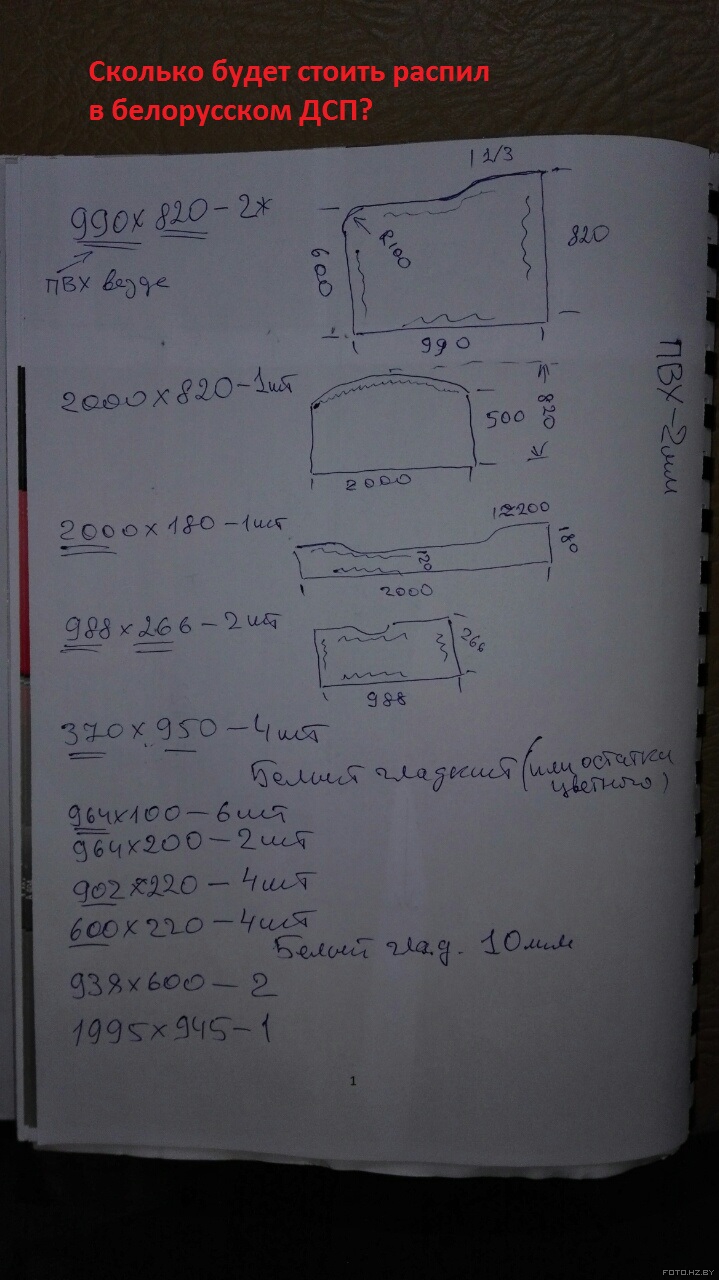 Сколько будет стоить распил
в белорусском ДСП?
1 1/3
990 x 820 - 2*
R100
600
820
ПВХ везде
990
ПВХ - 2мм
2000 x 820 - 1шт
500
820
2000
2000 x 180 - 1шт
200
120
180
2000
988 x 266 - 2шт
266
988
370 x 950 - 4шт
Белый гладкий (или остатки
цветного)
964x100 - 6шт
964x200 - 2шт
902x220 - 4шт
600x220 - 4шт
Белый глад. 10мм
938x600 - 2
1995x945 - 1
1
FOTO.HZ.BY